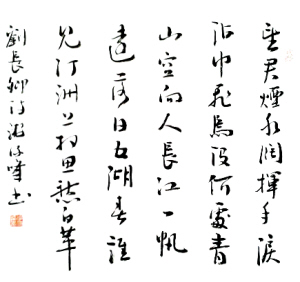 望君煙水闊揮手淚
沾巾飛鳥没何處青
山空向人長江一帆
遠落日五湖春誰
見汀洲上相思愁白苹
劉長卿詩 書